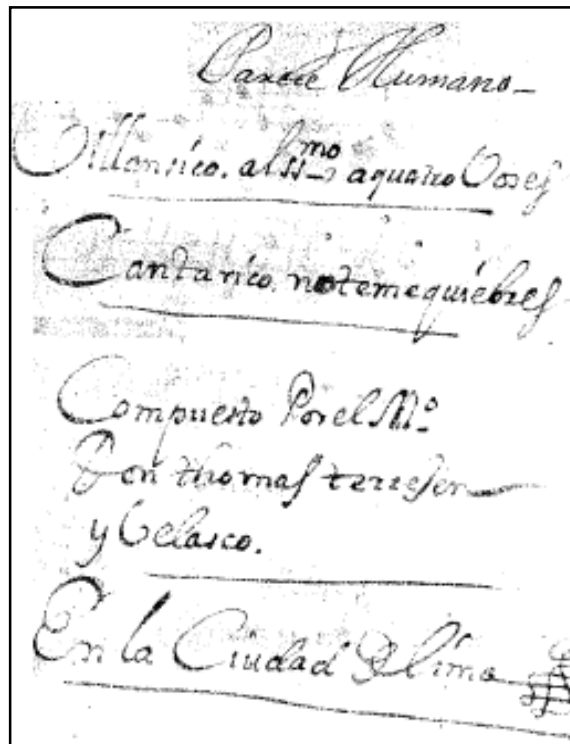 Parece Humano
Villansico. al ssmo aquatro Vozes
Cantarico. notemequiebres
Compuesto Por el Mo.
Don thomas terrejon
y Velasco.
En la Ciudad D lima